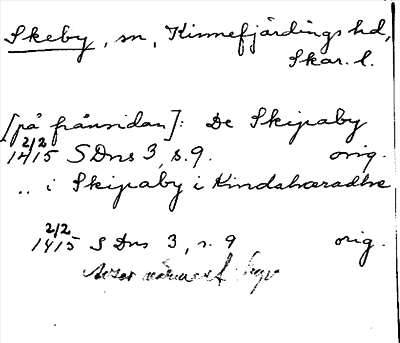 Skeby, sn, Kinnefjärdings hd,
Skar. l.
[på frånsidan]: De Skipaby
2/2
1415 SDns 3, s. 9. orig.
.. i Skipaby i Kindahæradhe
2/2
1415 SDns 3, s. 9 orig.
Avser